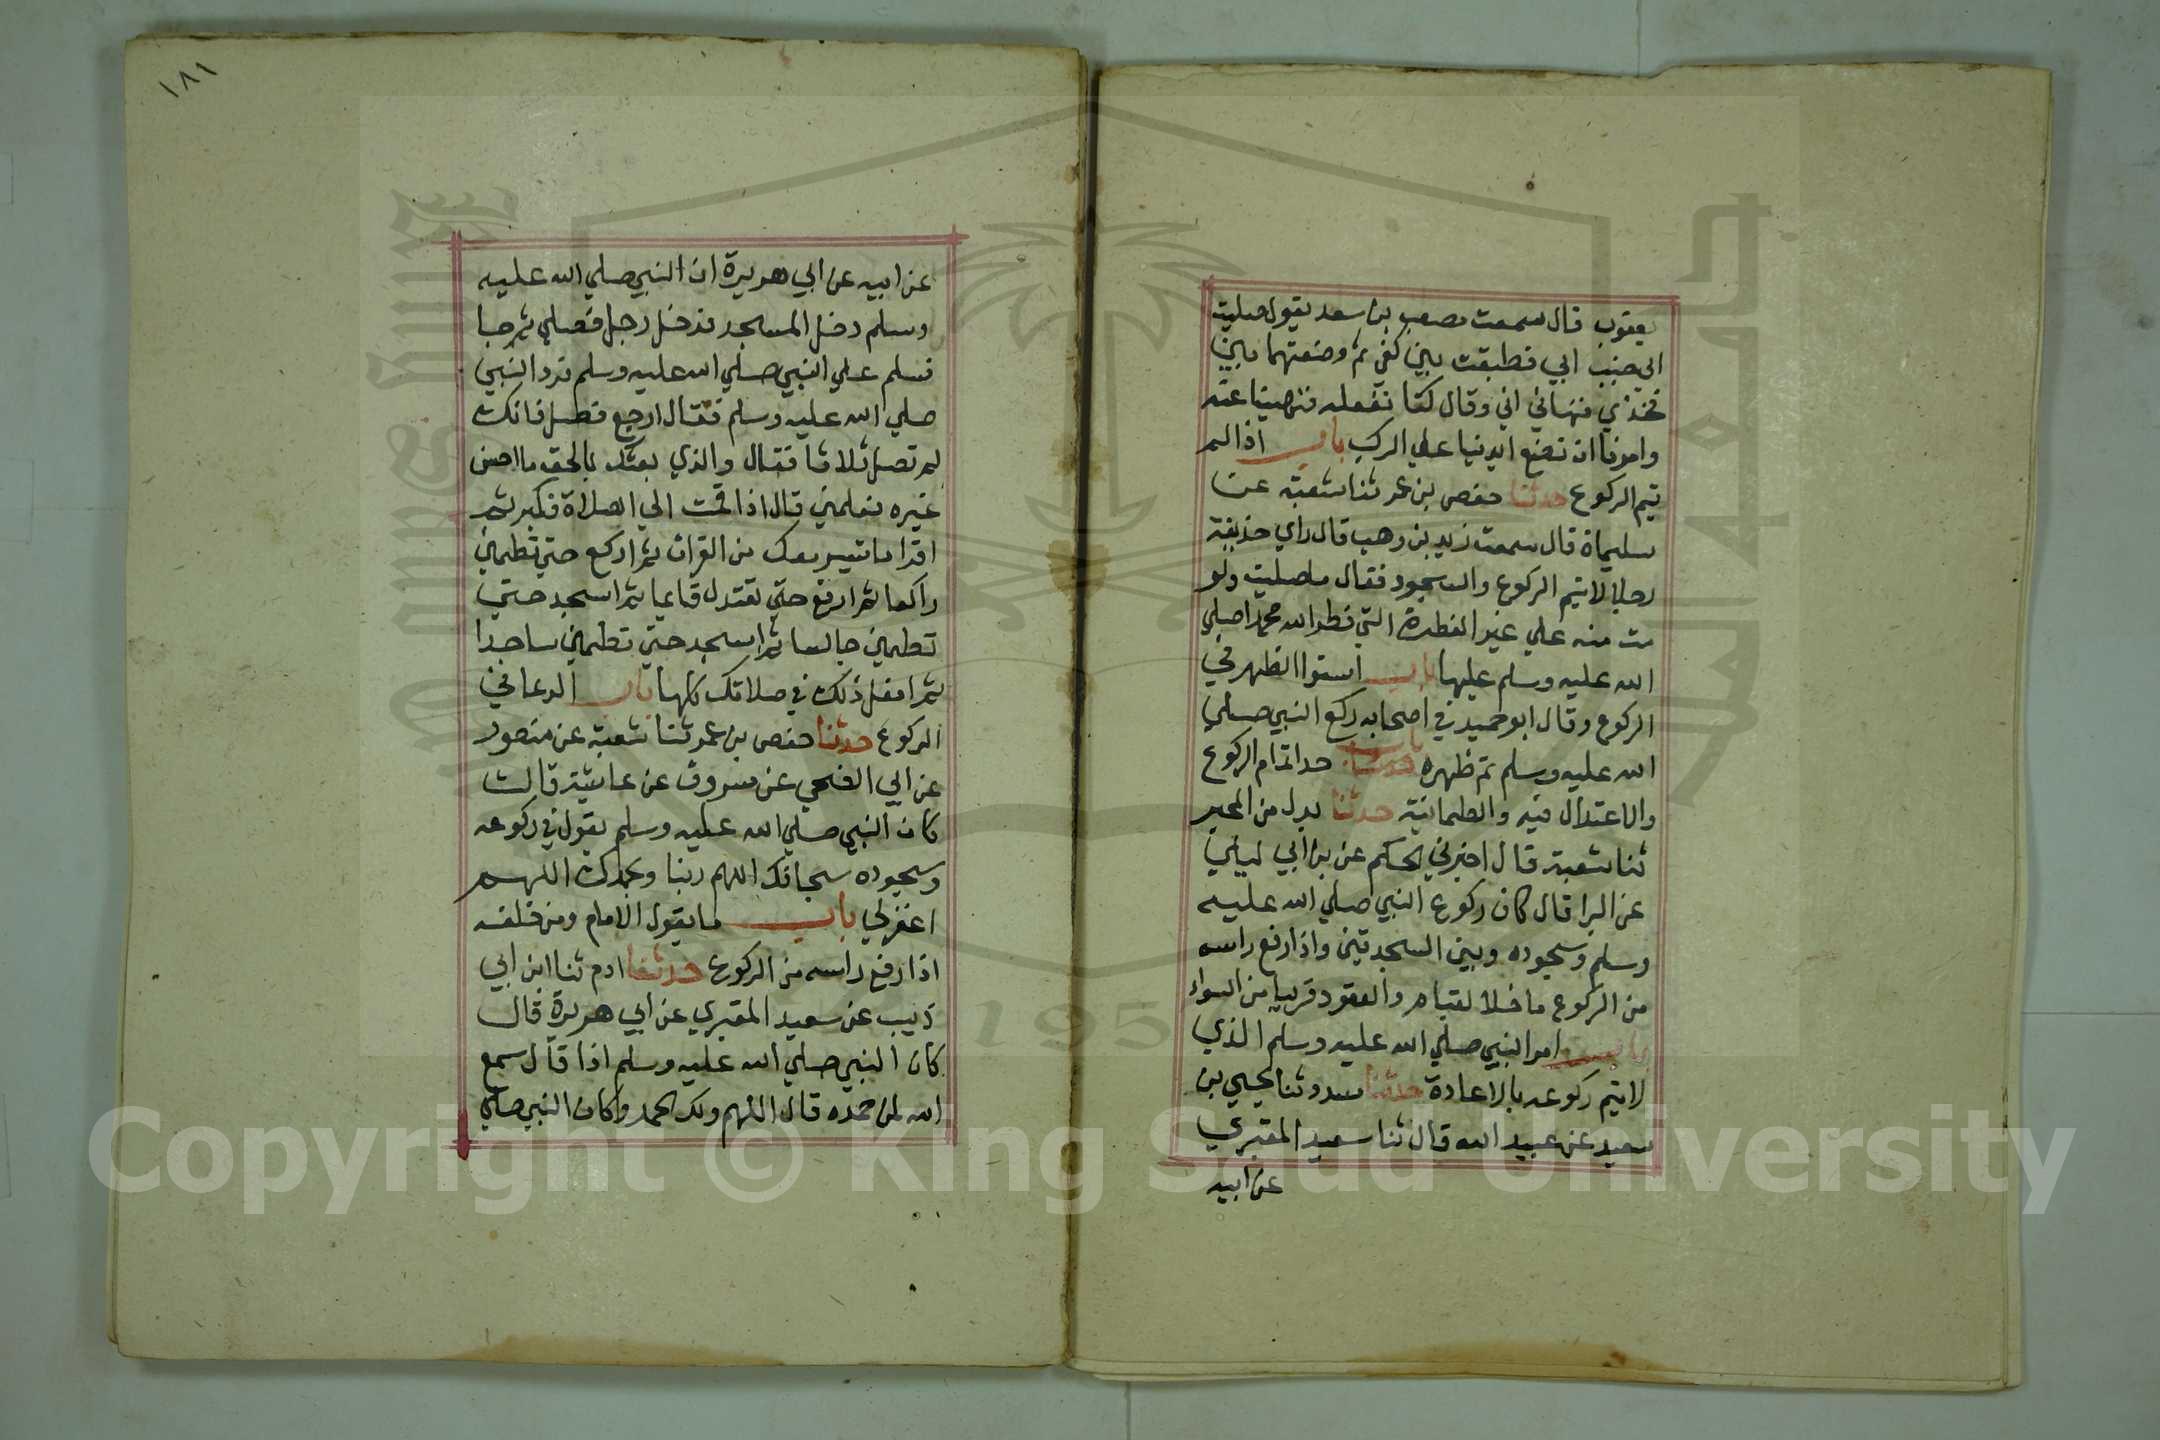 يعقوب قال سمعت مصعب بن سعد يقول صليت
الي جنب ابي فطبقت بين كفي ثم وضعتهما بين
فخذي فنهاني ابي وقال كنا نفعله فنهينا عنه
وامرنا ان نضع ايدينا علي الركب باب اذا لم
يتم الركوع حدثنا حفص بن عمر ثنا شعبة عن
سليمان قال سمعت زيد بن وهب قال راي حذيفة
رجلا لا يتم الركوع والسجود فقال ما صليت ولو
مت مت علي غير الفطرة التي فطر الله محمدا صلي
الله عليه وسلم عليها باب استوا الظهر في
الركوع وقال ابو حميد في اصحابه ركع النبي صلي
الله عليه وسلم ثم ظهره باب حد اتمام الركوع
والاعتدال فيه والطمانية حدثنا بدل بن المحبر
ثنا شعبة قال اخبرني الحكم عن بن ابي ليلي
عن البرا قال كان ركوع النبي صلي الله عليه
وسلم وسجوده وبين السجدتين واذا رفع راسه
من الركوع ما خلا القيام والقعود قريبا من السواء
باب امر النبي صلي الله عليه وسلم الذي
لا يتم ركوعه بالاعادة حدثنا مسدد ثنا يحيي بن
سعيد عن عبيد الله قال ثنا سعيد المقبري
عن ابيه
١٨١
عن ابيه عن ابي هريرة ان النبي صلي الله عليه
وسلم دخل المسجد فدخل رجل فصلي ثم جا
فسلم علي النبي صلي الله عليه وسلم فرد النبي
صلي الله عليه وسلم فقال ارجع فصل فانك
لم تصل ثلاثا فقال والذي بعثك بالحق ما احسن
غيره فعلمني قال اذا قمت الي الصلاة فكبر ثم
اقرا ما تيسر معك من القران ثم اركع حتي تطمئن
راكعا ثم ارفع حتي تعتدل قايما ثم اسجد حتي
تطمئن جالسا ثم اسجد حتي تطمئن ساجدا
ثم افعل ذلك في صلاتك كلها باب الدعا في
الركوع حدثنا حفص بن عمر ثنا شعبة عن منصور
عن ابي الضحي عن مسروق عن عايشة قالت
كان النبي صلي الله عليه وسلم يقول في ركوعه
وسجوده سبحانك اللهم ربنا وبحمدك اللهم
اغفر لي باب ما يقول الامام ومن خلفه
اذا رفع راسه من الركوع حدثنا ادم ثنا ابن ابي
ذيب عن سعيد المقبري عن ابي هريرة قال
كان النبي صلي الله عليه وسلم اذا قال سمع
الله لمن حمده قال اللهم ولك الحمد وكان النبي صلي
1957
Copyright © King Saud University